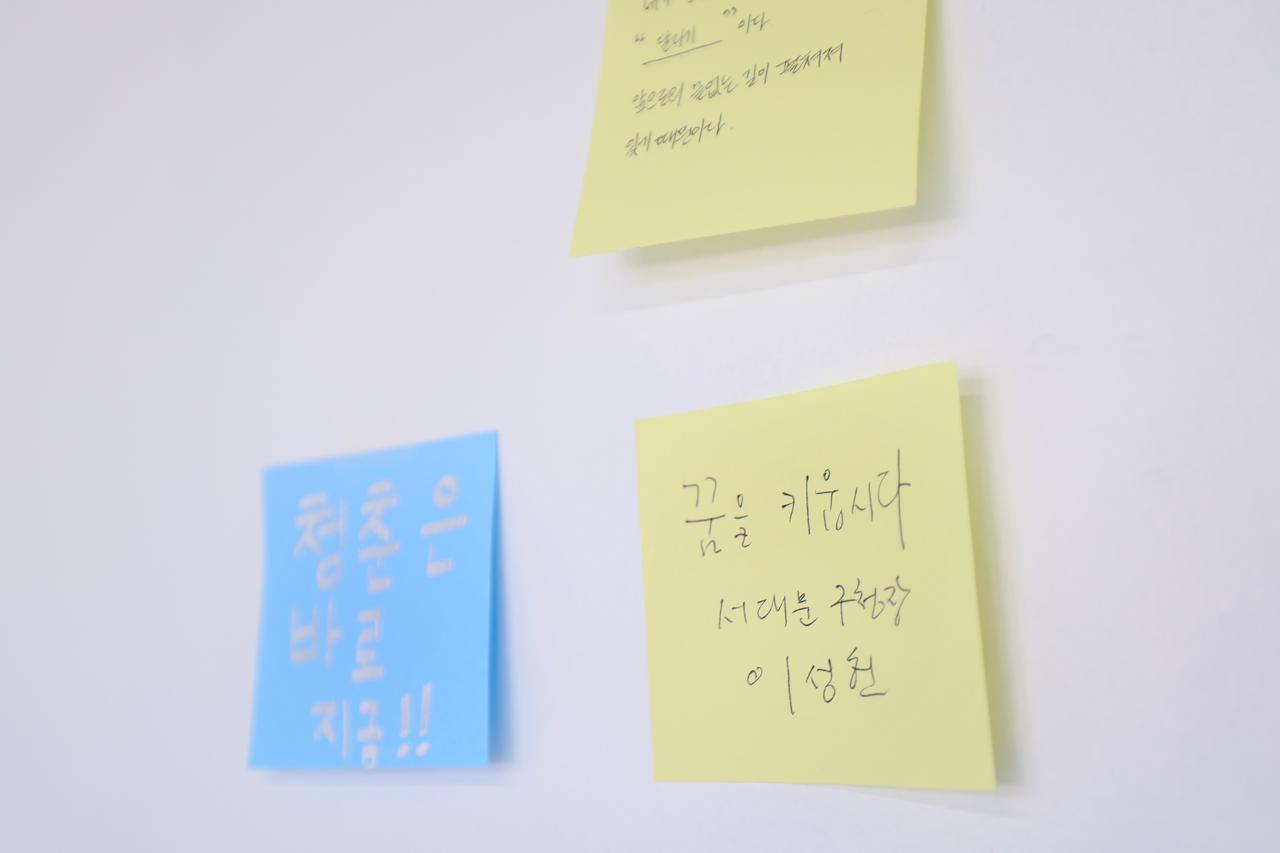 “ 달리기 ” 이다
앞으로의 끝없는 길이 펼쳐져
있기 때문이다.
청춘은
바로
지금!!
꿈을 키웁시다
서대문 구청장
이성헌